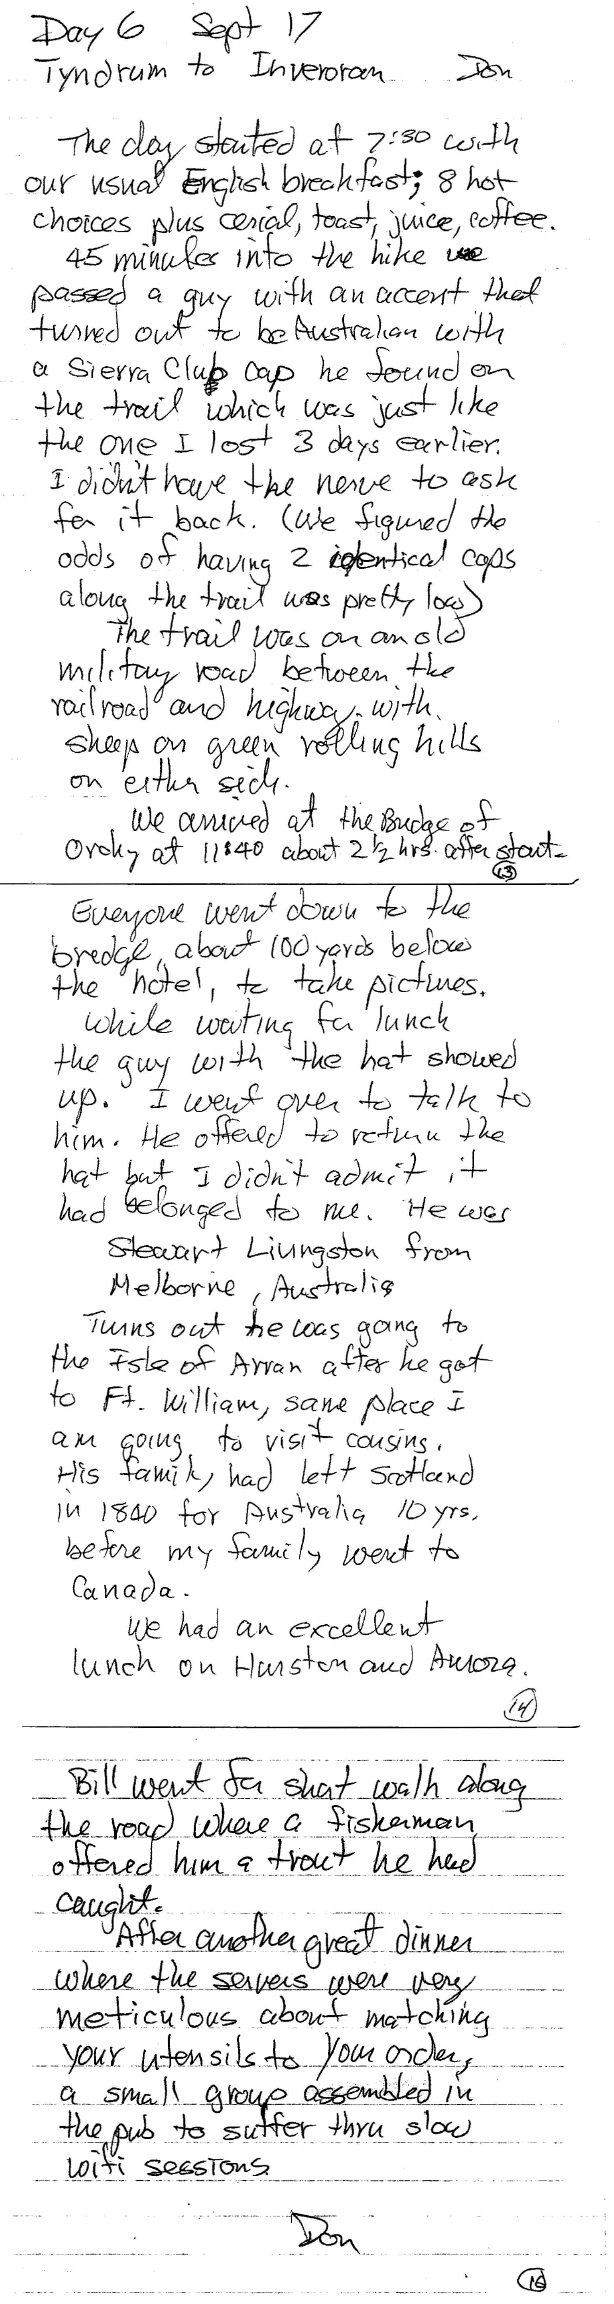 Day 6 Sept 17
Tyndrum to Inveroran Don
The day started at 7:30 with
our usual English breakfast; 8 hot
choices plus cerial, toast, juice, coffee.
45 minutes into the hike we
passed a guy with an accent that
turned out to be Australian with
a Sierra Club cap he found on
the trail which was just like
the one I lost 3 days earlier.
I didn't have the nerve to ask
for it back. (We figured the
odds of having 2 identical caps
along the trail was pretty low)
The trail was on an old
military road between the
railroad and highway with
sheep on green rolling hills
on either side.
We arrived at the Bridge of
Orchy at 11:40 about 2 1/2 hrs. after start.
13
Everyone went down to the
bredge, about 100 yards below
the hotel, to take pictures.
While waiting for lunch
the guy with the hat showed
up. I went over to talk to
him. He offered to return the
hat but I didn't admit it
had belonged to me. He was
Stewart Livingston from
Melborne, Australia
Turns out he was going to
the Isle of Arran after he got
to Ft. William, same place I
am going to visit cousins.
His family had left Scotland
in 1840 for Australia 10 yrs.
before my family went to
Canada.
We had an excellent
lunch on Hurston and Aurora.
14
Bill went for short walk along
the road where a fisherman
offered him a trout he had
caught.
After another great dinner
where the servers were very
meticulous about matching
your utensils to your order,
a small group assembled in
the pub to suffer thru slow
wifi sessions
Don